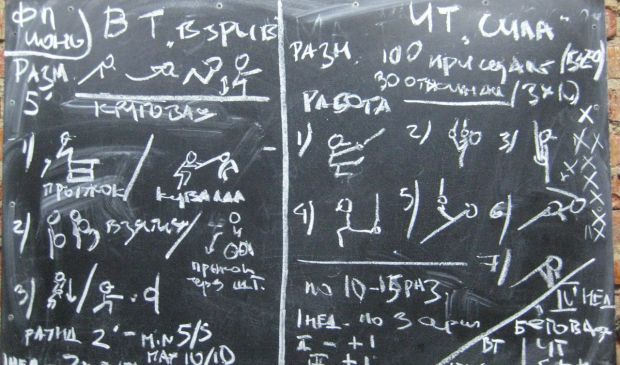 ФП
ИЮНЬ
ВТ "ВЗРЫВ"
РАЗМ
5'
КРУГОВАЯ
1)
ПРЫЖОК
КУВАЛДА
2)
ВЗЯТИЕ
ПРЫЖОК
3)
РАУНД 2' – MIN 5/5
MAX 10/10
ЧТ "СИЛА"
РАЗМ. 100 ПРИСЕДАН /5×20
30 ОТЖИМАНИЯ /3×10
РАБОТА
1) 2) 3)
4) 5) 6)
7)
ПО 10-15 РАЗ.
I НЕД. ПО 3
II – +1
III +1
IV НЕД
БЕГОВАЯ
ВТ ЧТ